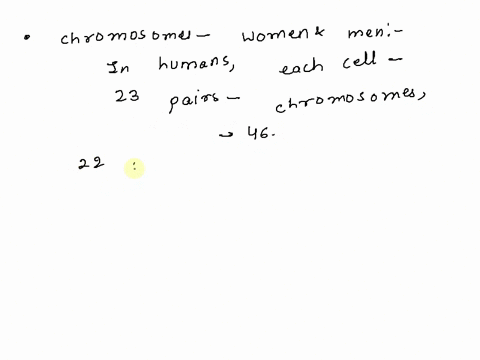 • chromosomes - women & men:-
In humans, each cell -
23 pairs - chromosomes,
→ 46.
22 :